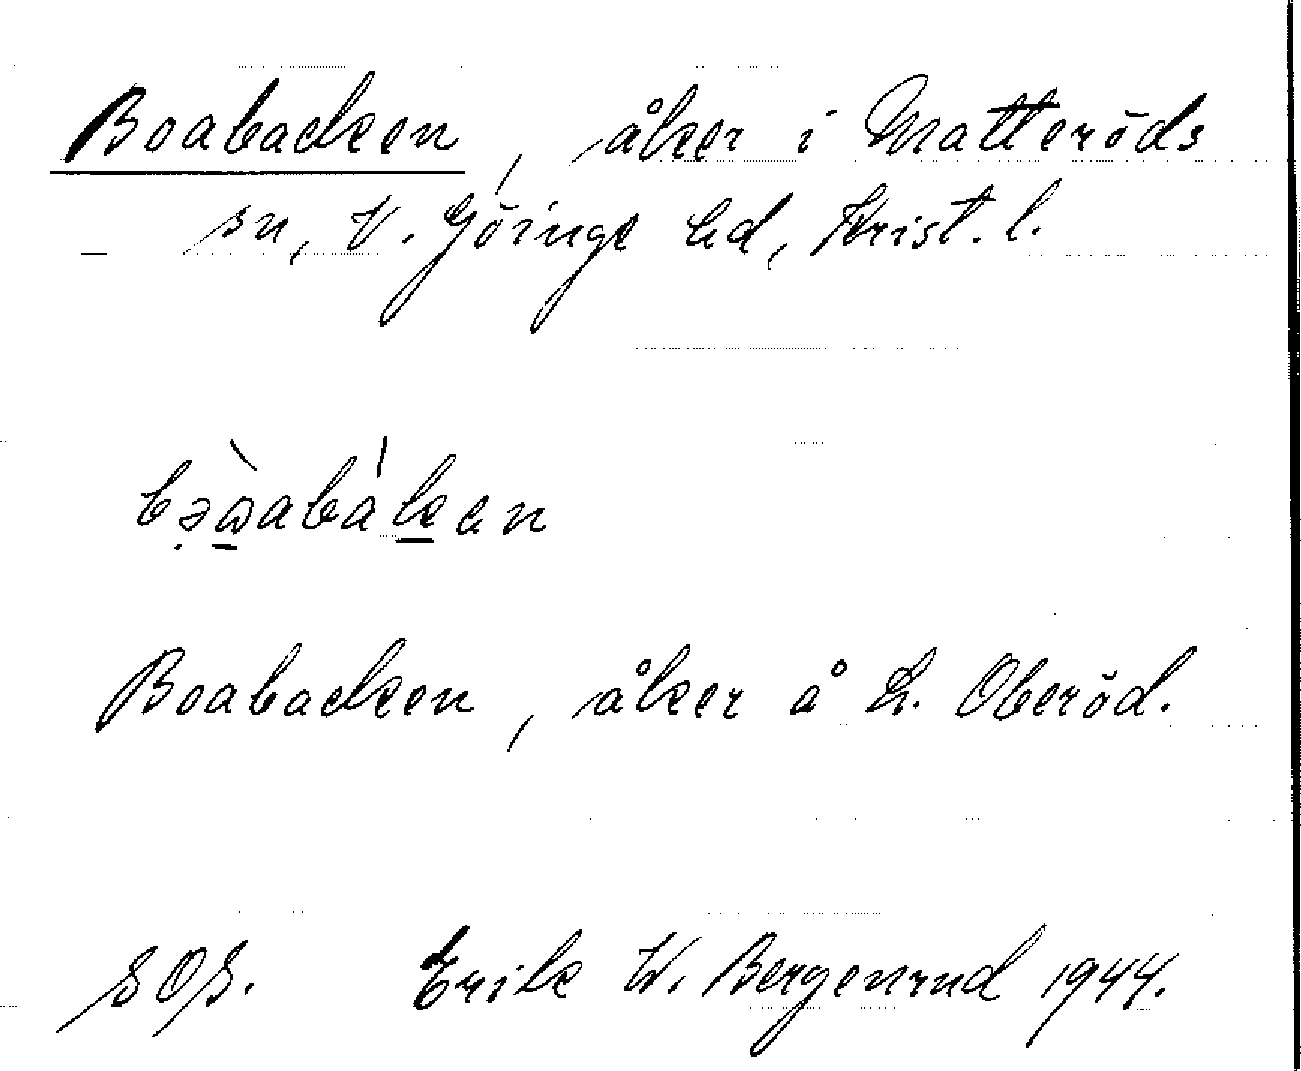 Boabacken, åker i Matteröds
sn, V. Göinge hd, Krist. l.
Boabacken, åker å L. Oberöd.
SOS. Erik W. Bergenrud 1944.